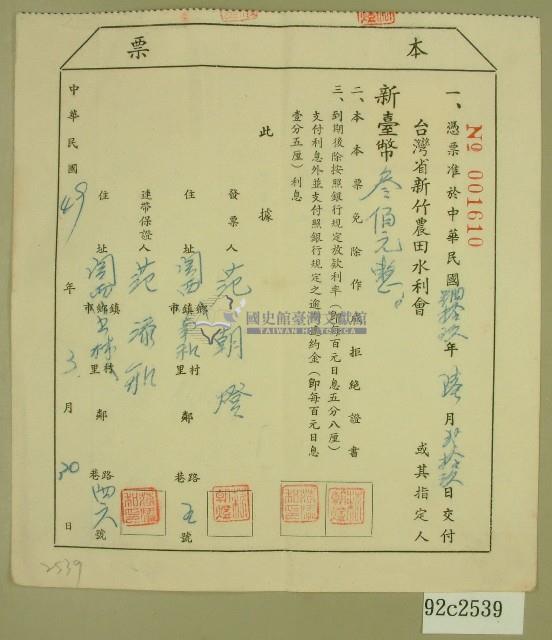 本票
No 001610
一、憑票准於中華民國肆拾玖年陸月貳拾玖日交付
台灣省新竹農田水利會 或其指定人
新臺幣叁佰元整
二、本本票免除作成拒絕證書
三、到期後除按照銀行規定放款利率(即每百元日息五分八厘)
支付利息外並支付照銀行規定之逾期違約金(即每百元日息
壹分五厘)利息
此據
發票人 范朝燈
住址 關西 鄉鎮市 村里 鄰 路巷 五號
連帶保證人 范添和
住址 關西 鎮鄉市 村里 鄰 路巷 四六號
中華民國 49年 3月 30日
國史館臺灣文獻館
TAIWAN HISTORICA
2539
92c2539